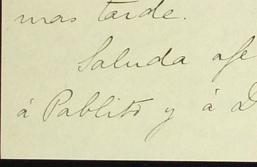 mas tarde.
Saluda afe
á Pablito y á D